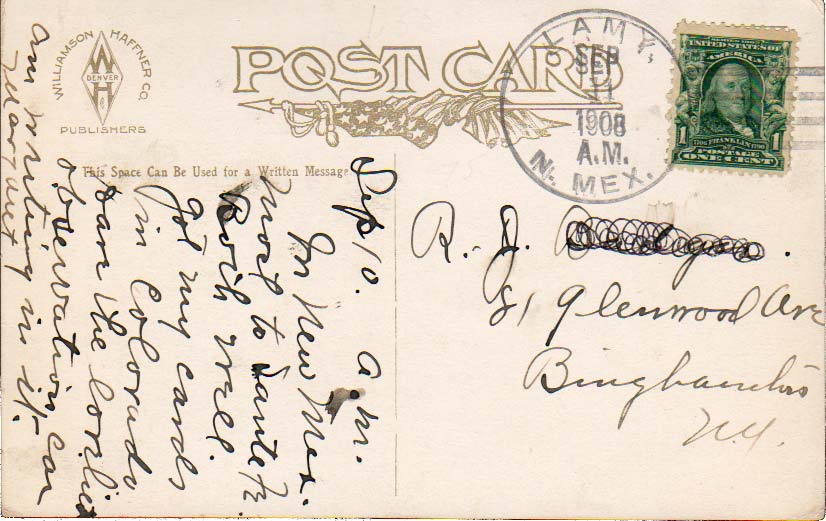 WILLIAMSON HAFFNER CO.
W
DENVER
H
PUBLISHERS
POST CARD
This Space Can Be Used for a Written Message
LAMY,
SEP
11
1908
A.M.
N. MEX.
SERIES 1902
UNITED STATES OF
AMERICA
1 1
1706 FRANKLIN 1790
POSTAGE
ONE CENT
R. J.
81 Glenwood Ave
Binghamton
N.Y.
Sep 10. a.m.
In New Mex.
next to Santa Fe
Both well.
got my cards
in Colorado
ran the
observation car
am writing in it-